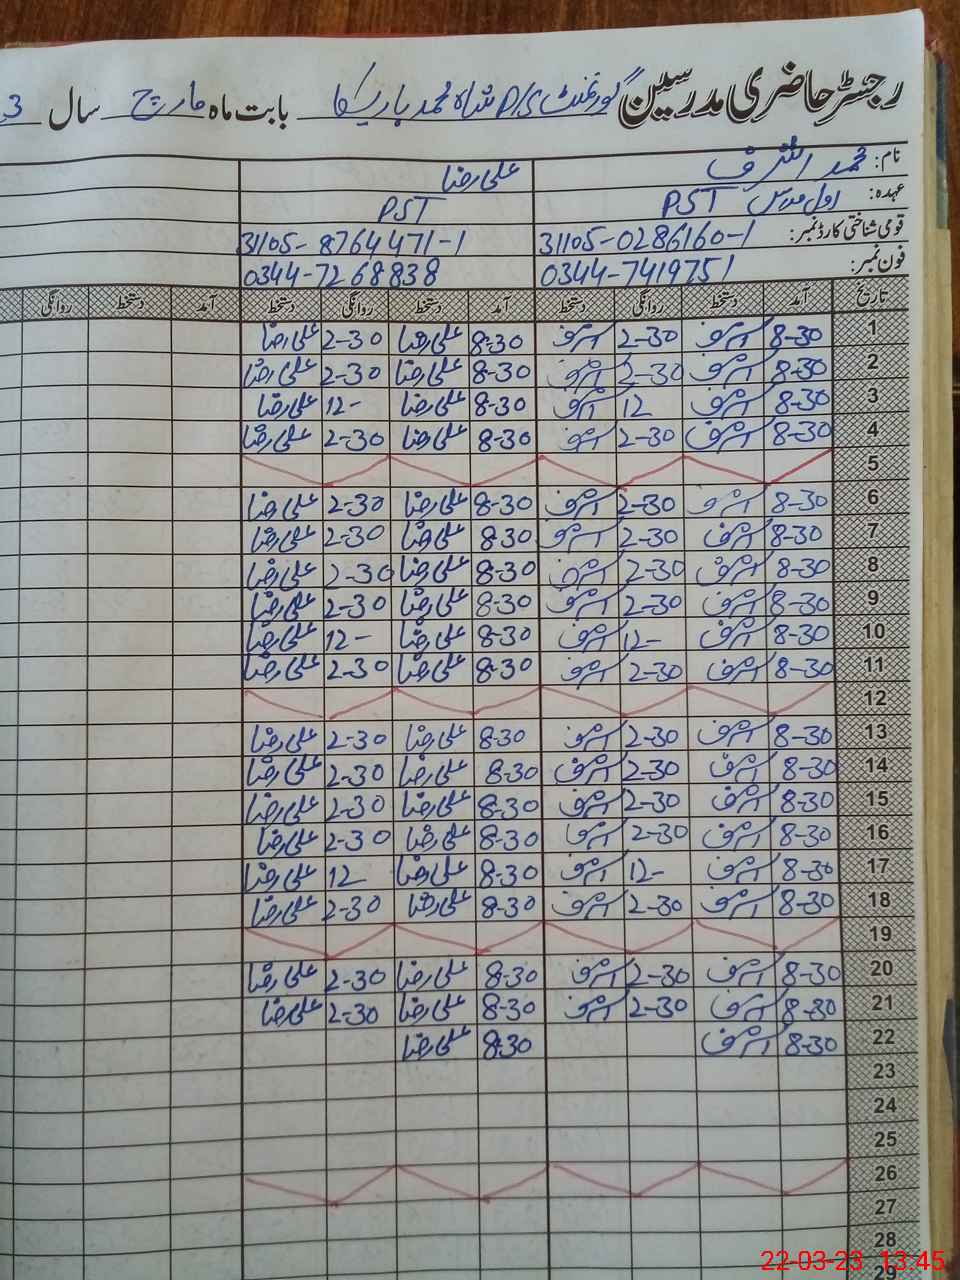 رجسٹر حاضری مدرسین گورنمنٹ P/S شاہ محمد بابت ماہ مارچ سال 3
نام: محمد اشرف علی رضا
عہدہ: اول مدرس PST PST
قومی شناختی کارڈ نمبر: 31105-0286160-1 31105-8764471-1
فون نمبر: 0344-7419751 0344-7268838
تاریخ آمد دستخط روانگی دستخط آمد دستخط روانگی دستخط آمد دستخط روانگی
1 8-30 اشرف 2-30 اشرف 8-30 علی رضا 2-30 علی رضا
2 8-30 اشرف 2-30 اشرف 8-30 علی رضا 2-30 علی رضا
3 8-30 اشرف 12 اشرف 8-30 علی رضا 12- علی رضا
4 8-30 اشرف 2-30 اشرف 8-30 علی رضا 2-30 علی رضا
5
6 8-30 اشرف 2-30 اشرف 8-30 علی رضا 2-30 علی رضا
7 8-30 اشرف 2-30 اشرف 8-30 علی رضا 2-30 علی رضا
8 8-30 اشرف 2-30 اشرف 8-30 علی رضا 2-30 علی رضا
9 8-30 اشرف 2-30 اشرف 8-30 علی رضا 2-30 علی رضا
10 8-30 اشرف 12- اشرف 8-30 علی رضا 12- علی رضا
11 8-30 اشرف 2-30 اشرف 8-30 علی رضا 2-30 علی رضا
12
13 8-30 اشرف 2-30 اشرف 8-30 علی رضا 2-30 علی رضا
14 8-30 اشرف 2-30 اشرف 8-30 علی رضا 2-30 علی رضا
15 8-30 اشرف 2-30 اشرف 8-30 علی رضا 2-30 علی رضا
16 8-30 اشرف 2-30 اشرف 8-30 علی رضا 2-30 علی رضا
17 8-30 اشرف 12- اشرف 8-30 علی رضا 12 علی رضا
18 8-30 اشرف 2-30 اشرف 8-30 علی رضا 2-30 علی رضا
19
20 8-30 اشرف 2-30 اشرف 8-30 علی رضا 2-30 علی رضا
21 8-30 اشرف 2-30 اشرف 8-30 علی رضا 2-30 علی رضا
22 8-30 اشرف 8-30 علی رضا
23
24
25
26
27
28
29
22-03-23 13:45